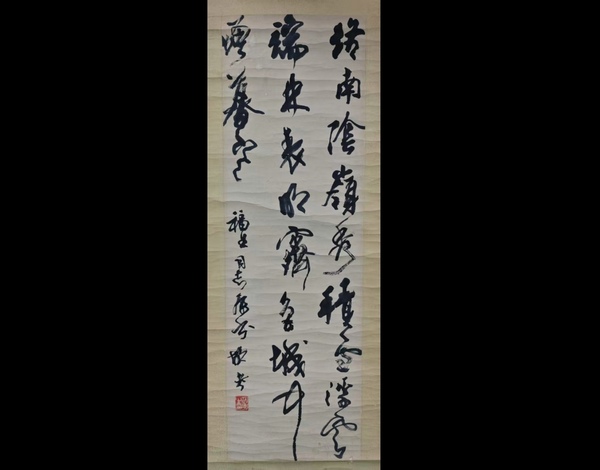 終南陰嶺秀積雪浮雲
端林表明霽色城中
增暮寒
同志